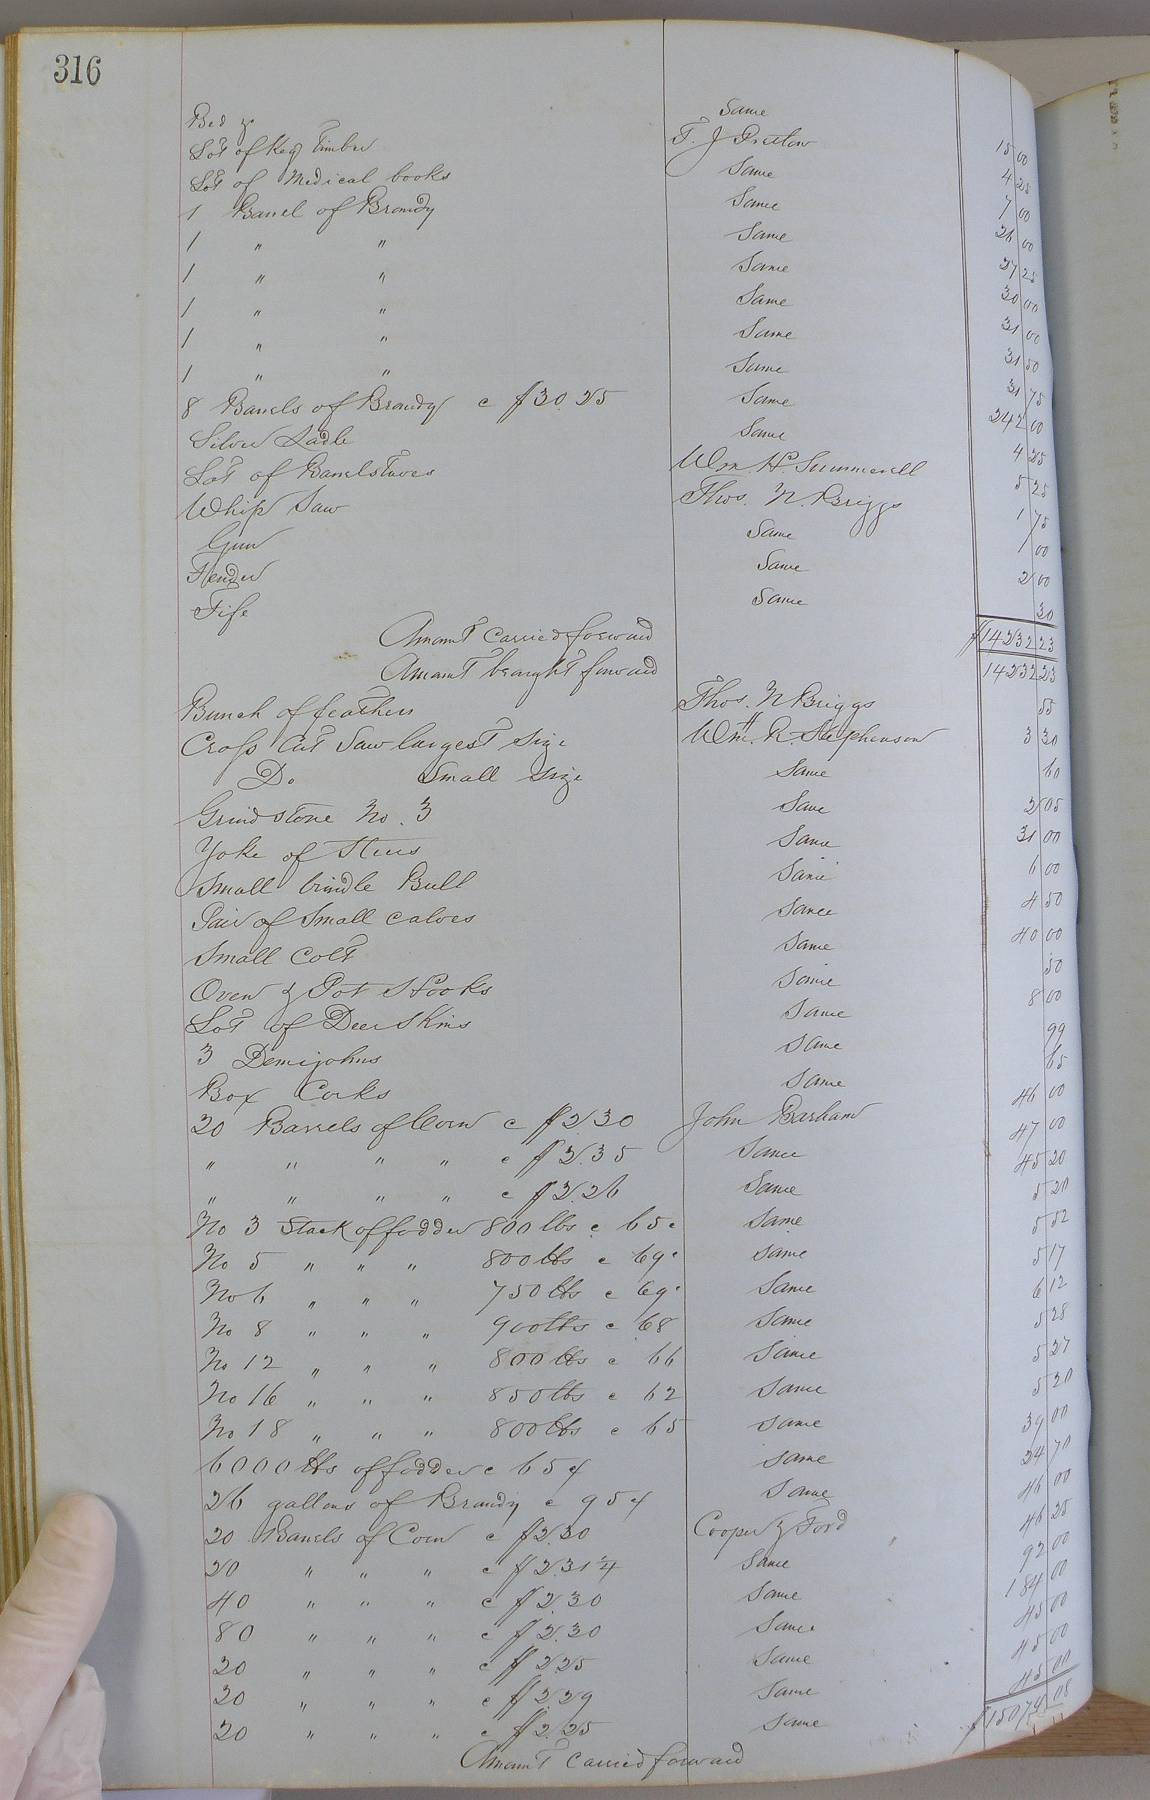 316
Bed &c Same 15 00
Lot of Keg Timber T. J Pretlow 4 25
Lot of Medical books Same 7 00
1 Barrel of Brandy Same 26 00
1 " " Same 27 25
1 " " Same 30 00
1 " " Same 31 00
1 " " Same 31 50
1 " " Same 31 75
8 Barrels of Brandy c $30 25 Same 242 00
Silver Ladle Same 4 25
Lot of Barrelstaves Wm H Summerell 5 25
Whip Saw Thos. N. Briggs 1 75
Gun Same 1 00
Fender Same 2 00
Fife Same 30
Amount carried forward $14232 23
Amount brought forward 14232 23
Bunch of feathers Thos. N Briggs 55
Cross Cut Saw largest Size Wm. H. Stephenson 3 30
Do Small Size Same 60
Grindstone No. 3 Same 2 05
Yoke of Steers Same 31 00
Small brindle Bull Same 6 00
Pair of Small calves Same 4 50
Small Colt Same 40 00
Oven & Pot Hooks Same 50
Lot of Deer Skins Same 8 00
3 Demijohns Same 99
Box Corks Same 65
20 Barrels of Corn c $2.30 John Barham 46 00
" " " " c $2.35 Same 47 00
" " " " c $2.26 Same 45 20
No 3 Stack of fodder 800 lbs c 65c Same 5 20
No 5 " " " 800 lbs c 69c Same 5 52
No 6 " " " 750 lbs c 69c Same 5 17
No 8 " " " 900 lbs c 68 Same 6 12
No 12 " " " 800 lbs c 66 Same 5 28
No 16 " " " 850 lbs c 62 Same 5 27
No 18 " " " 800 lbs c 65 Same 5 20
6000 lbs of fodder c 65 ¢ Same 39 00
26 gallons of Brandy c 95 ¢ Same 24 70
20 Barrels of Corn c $2.30 Cooper & Ford 46 00
20 " " " c $2.31 1/4 Same 46 25
40 " " " c $2.30 Same 92 00
80 " " " c $2.30 Same 184 00
20 " " " c $2.25 Same 45 00
20 " " " c $2.29 Same 45 00
20 " " " c $2.25 Same 45 00
Amount carried forward $15074 08